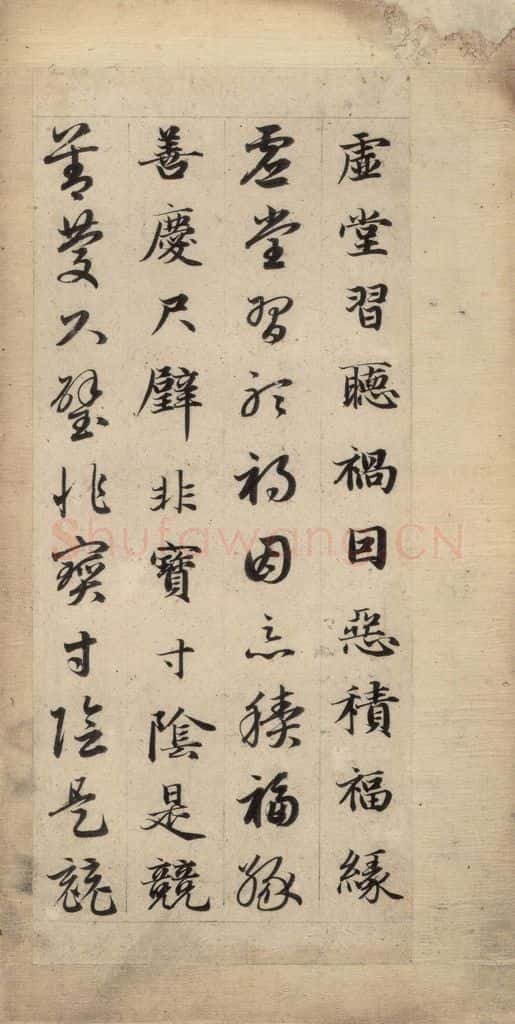 虛堂習聽禍因惡積福緣
虛堂習聽禍因惡積福緣
善慶尺璧非寶寸陰是競
善慶尺璧非寶寸陰是競
Shufawang.CN